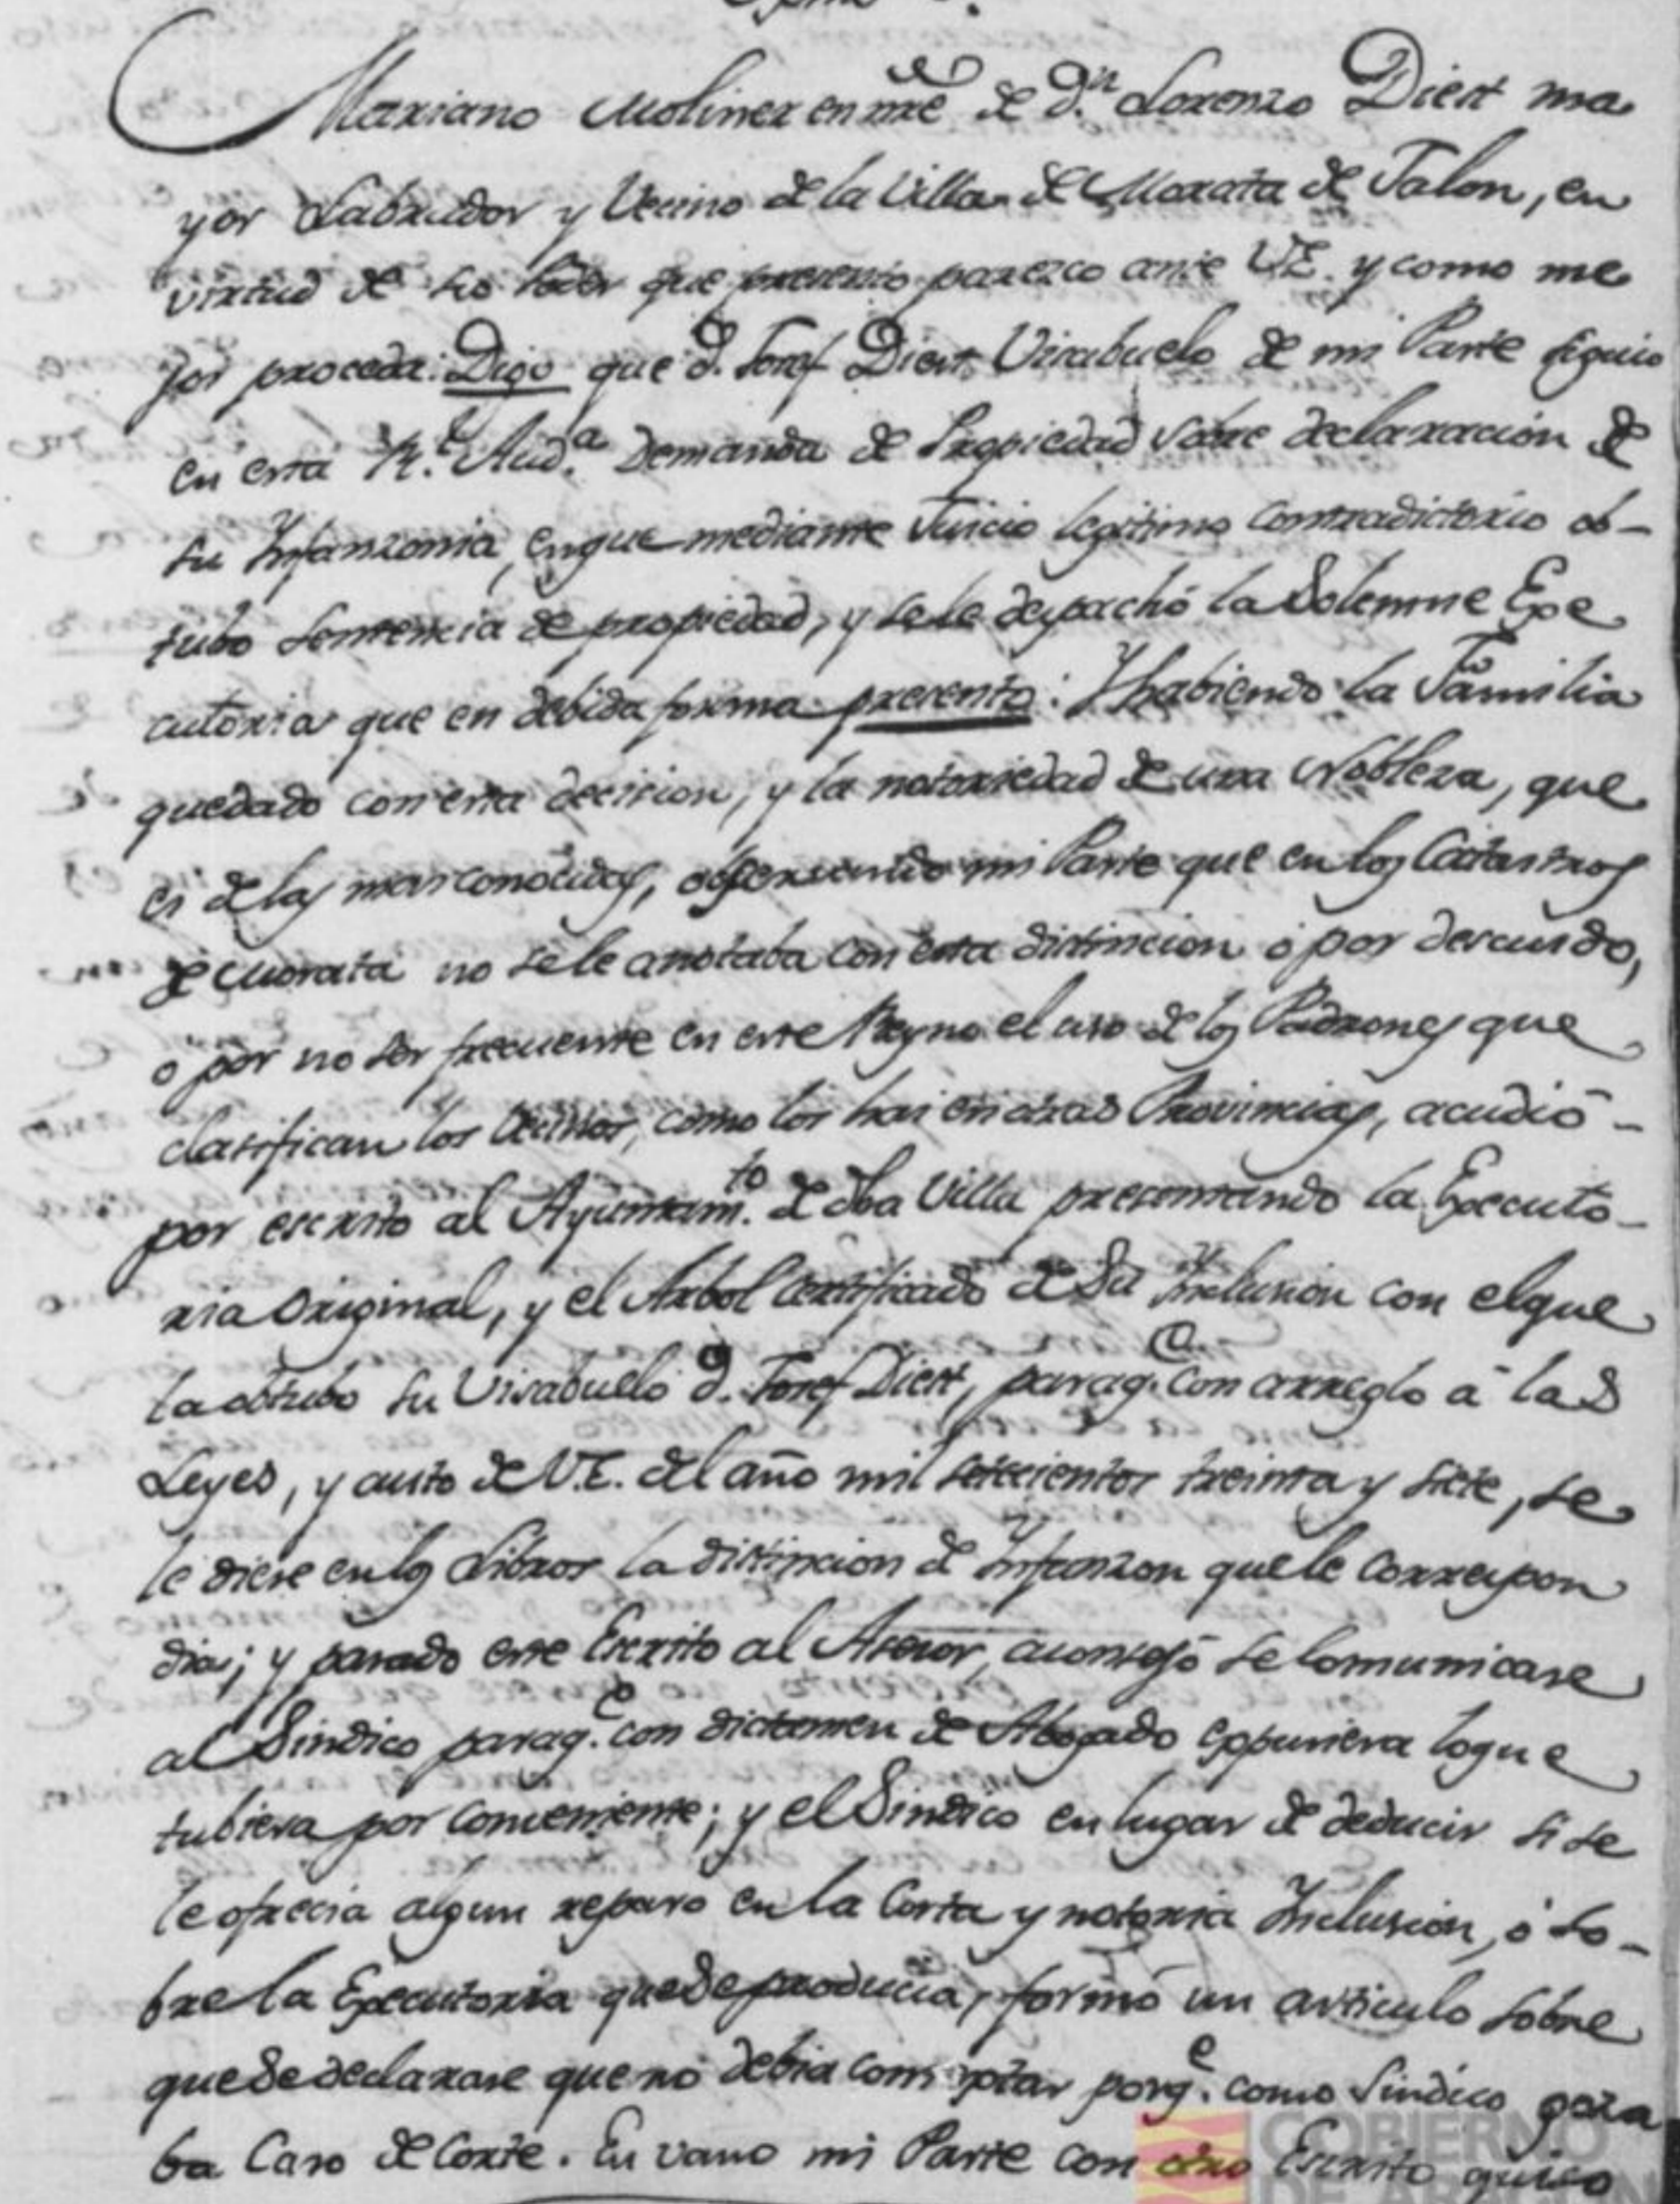 Mariano Moliner en nre de D.n Lorenzo Diest ma
yor Labrador y Vecino de la Villa de Morata de Jalon, en
virtud de su Poder que presento parezco ante V.E. y como me
jor proceda: Digo que D. Josef Diest Visabuelo de mi Parte siguio
en esta R.l Aud.a Demanda de Propiedad sobre declaracion de
su Infanzonia, en que mediante Juicio legitimo contradictorio ob-
tubo Sentencia de propiedad, y se le despachó la Solemne Exe
cutoria que en debida forma presento: Y habiendo la Familia
quedado con esta decision, y la notoriedad de una Nobleza, que
es de las mas conocidas, mi Parte que en los Catastros
de Morata no se le anotaba con esta distincion ó por descuido,
ó por no ser frecuente en este Reyno el uso de los Padrones que
clasifican los Vecinos, como los hai en otras Provincias, acudió-
por escrito al Ayuntam.to de dha Villa presentando la Executo-
ria Original, y el Arbol certificado de Su Inclusion con el que
la obtubo su Visabuelo D. Josef Diest, paraq.e con arreglo á las
Leyes, y auto de V.E. del año mil setecientos treinta y siete, se
le diese en los Libros la distincion de Infanzon que le correspon
dia; y pasado este Escrito al Asesor, aconsejó se comunicase
al Sindico paraq.e con dictamen de Abogado expusiera loque
tubiera por conveniente; y el Sindico en lugar de deducir si se
le ofrecia algun reparo en la Corta y notoria Inclusion, ó so-
bre la Executoria que se producia, formó un articulo sobre
que se declarase que no debia contestar porq.e como Sindico goza
ba Caso de Corte. En vano mi Parte con otro Escrito quiso
GOBIERNO
DE ARAGON